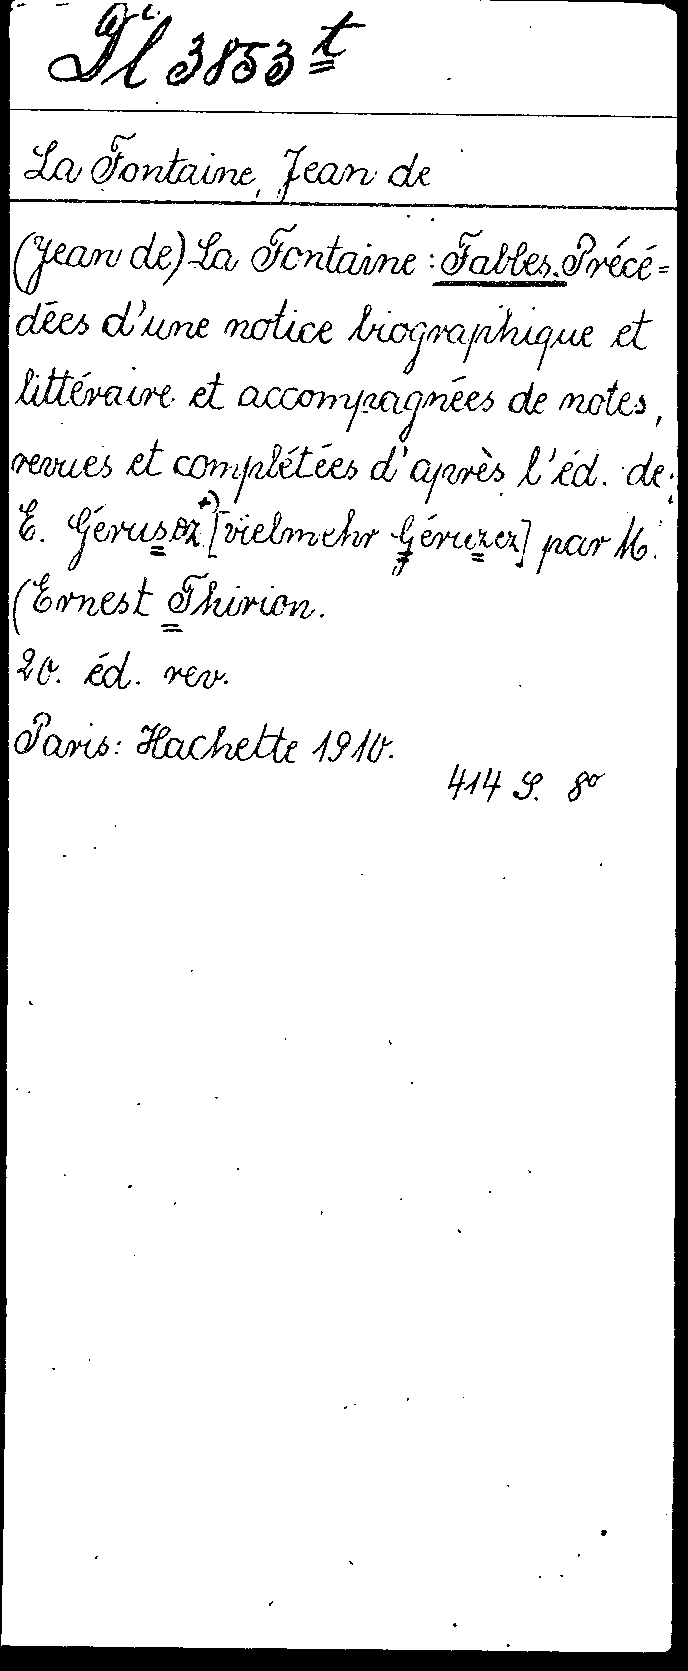 Dl 3853 t
La Fontaine, Jean de
(Jean de) La Fontaine : Fables. Précé=
dées d'une notice biographique et
littéraire et accompagnées de notes,
revues et complétées d'après l'éd. de
E. Gérusez +) [vielmehr Géruzez] par M.
(Ernest Thirion.
20. éd. rev.
Paris: Hachette 1910.
414 S. 8o